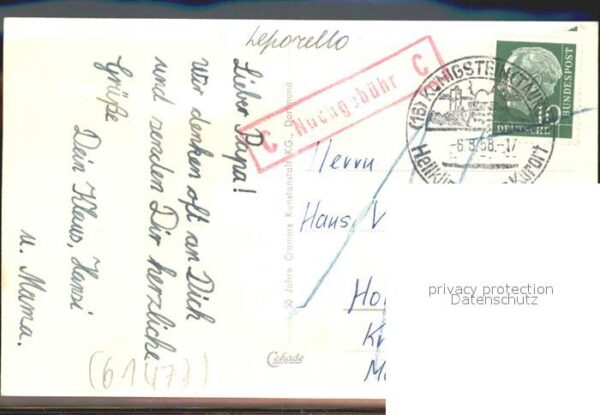 Leporello
Lieber Papa!
Wir denken oft an Dich
und senden Dir herzliche
Grüße
Dein Klaus, Hansi
u. Mama.
(61477)
50 Jahre Cramers Kunstanstalt KG., Dortmund
Cekade
C Nachgebühr C
(16) KÖNIGSTEIN (TAUNUS)
-6.8.58.-17
Kurort
10
DEUTSCHE BUNDESPOST
Herrn
Hans V
Ho
K
M
privacy protection
Datenschutz